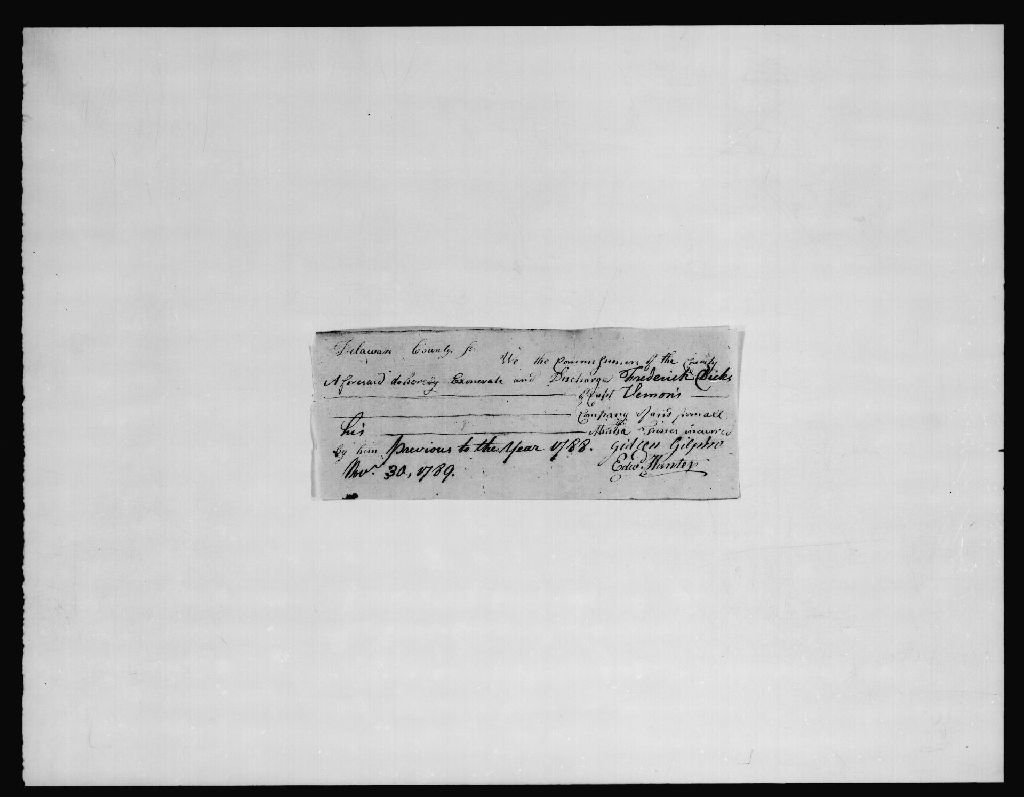 Delaware County Ss.
We the Commissioners of the County
Aforesaid do hereby Exonerate and Discharge Frederick Dicks
of Capt Vernon's
Company of and from all
his Militia Fines incurred
by him previous to the Year 1788. Gideon Gilpin
Novr. 30, 1789. Edwd. Hunter